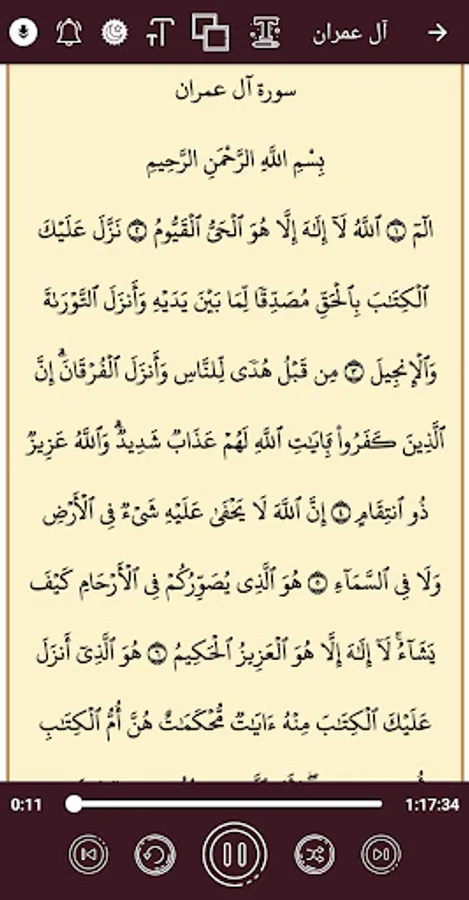 آل عمران
سورة آل عمران
بِسْمِ اللَّهِ الرَّحْمَنِ الرَّحِيمِ
الٓمٓ ۝١ ٱللَّهُ لَآ إِلَٰهَ إِلَّا هُوَ ٱلْحَىُّ ٱلْقَيُّومُ ۝٢ نَزَّلَ عَلَيْكَ
ٱلْكِتَٰبَ بِٱلْحَقِّ مُصَدِّقًا لِّمَا بَيْنَ يَدَيْهِ وَأَنزَلَ ٱلتَّوْرَىٰةَ
وَٱلْإِنجِيلَ ۝٣ مِن قَبْلُ هُدًى لِّلنَّاسِ وَأَنزَلَ ٱلْفُرْقَانَ ۗ إِنَّ
ٱلَّذِينَ كَفَرُوا۟ بِـَٔايَٰتِ ٱللَّهِ لَهُمْ عَذَابٌ شَدِيدٌ ۗ وَٱللَّهُ عَزِيزٌ
ذُو ٱنتِقَامٍ ۝٤ إِنَّ ٱللَّهَ لَا يَخْفَىٰ عَلَيْهِ شَىْءٌ فِى ٱلْأَرْضِ
وَلَا فِى ٱلسَّمَآءِ ۝٥ هُوَ ٱلَّذِى يُصَوِّرُكُمْ فِى ٱلْأَرْحَامِ كَيْفَ
يَشَآءُ ۚ لَآ إِلَٰهَ إِلَّا هُوَ ٱلْعَزِيزُ ٱلْحَكِيمُ ۝٦ هُوَ ٱلَّذِىٓ أَنزَلَ
عَلَيْكَ ٱلْكِتَٰبَ مِنْهُ ءَايَٰتٌ مُّحْكَمَٰتٌ هُنَّ أُمُّ ٱلْكِتَٰبِ
0:11 1:17:34